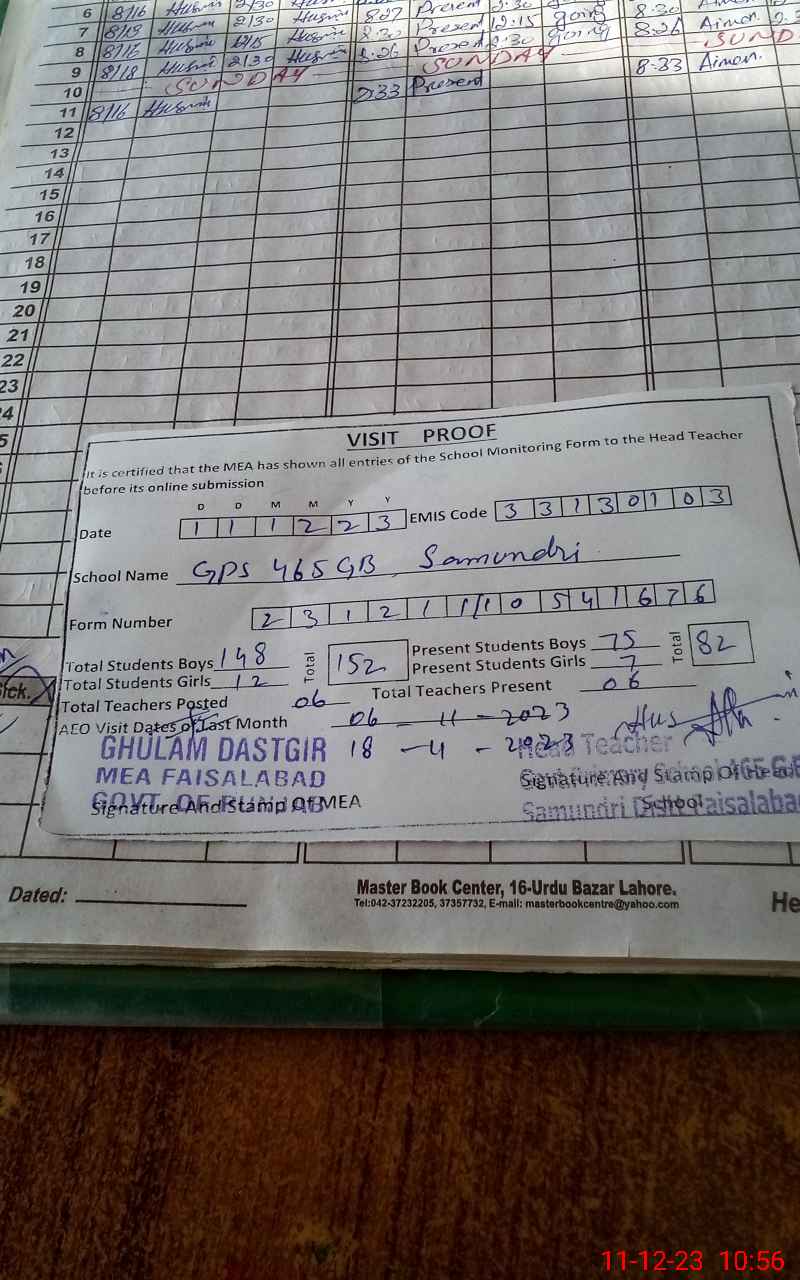 6 8/16 Husnin 2/30 8.27 Present 2.30 going 8.30
7 8/19 Husnin 2/30 Husnin 8.30 Present 12.15 going 8.26 Aimon.
8 8/16 Husnin Husnin 8.26 Present 2.30 going SUND
9 8/18 Husnin 2/30 SUNDAY 8.33 Aimon.
10 SUNDAY 8.33 Present
11 8/16 Husnin
12
13
14
15
16
17
18
19
20
21
22
23
24
VISIT PROOF
It is certified that the MEA has shown all entries of the School Monitoring Form to the Head Teacher
before its online submission
D D M M Y Y
Date 1 1 1 2 2 3 EMIS Code 3 3 1 3 0 1 0 3
School Name GPS 465 GB Samundri
Form Number 2 3 1 2 1 1 1 0 5 4 1 6 7 6
Total Students Boys 148 Total 152 Present Students Boys 75 Total 82
Total Students Girls 12 Present Students Girls 7
Total Teachers Posted 06 Total Teachers Present 06
AEO Visit Dates of Last Month 06 - 11 - 2023
GHULAM DASTGIR 18 - 11 - 2023 Head Teacher
MEA FAISALABAD Signature And Stamp Of Head
GOVT. OF PUNJAB School
Signature And Stamp Of MEA Samundri Distt Faisalabad
Dated: Master Book Center, 16-Urdu Bazar Lahore.
Tel:042-37232205, 37357732, E-mail: masterbookcentre@yahoo.com
He
11-12-23 10:56